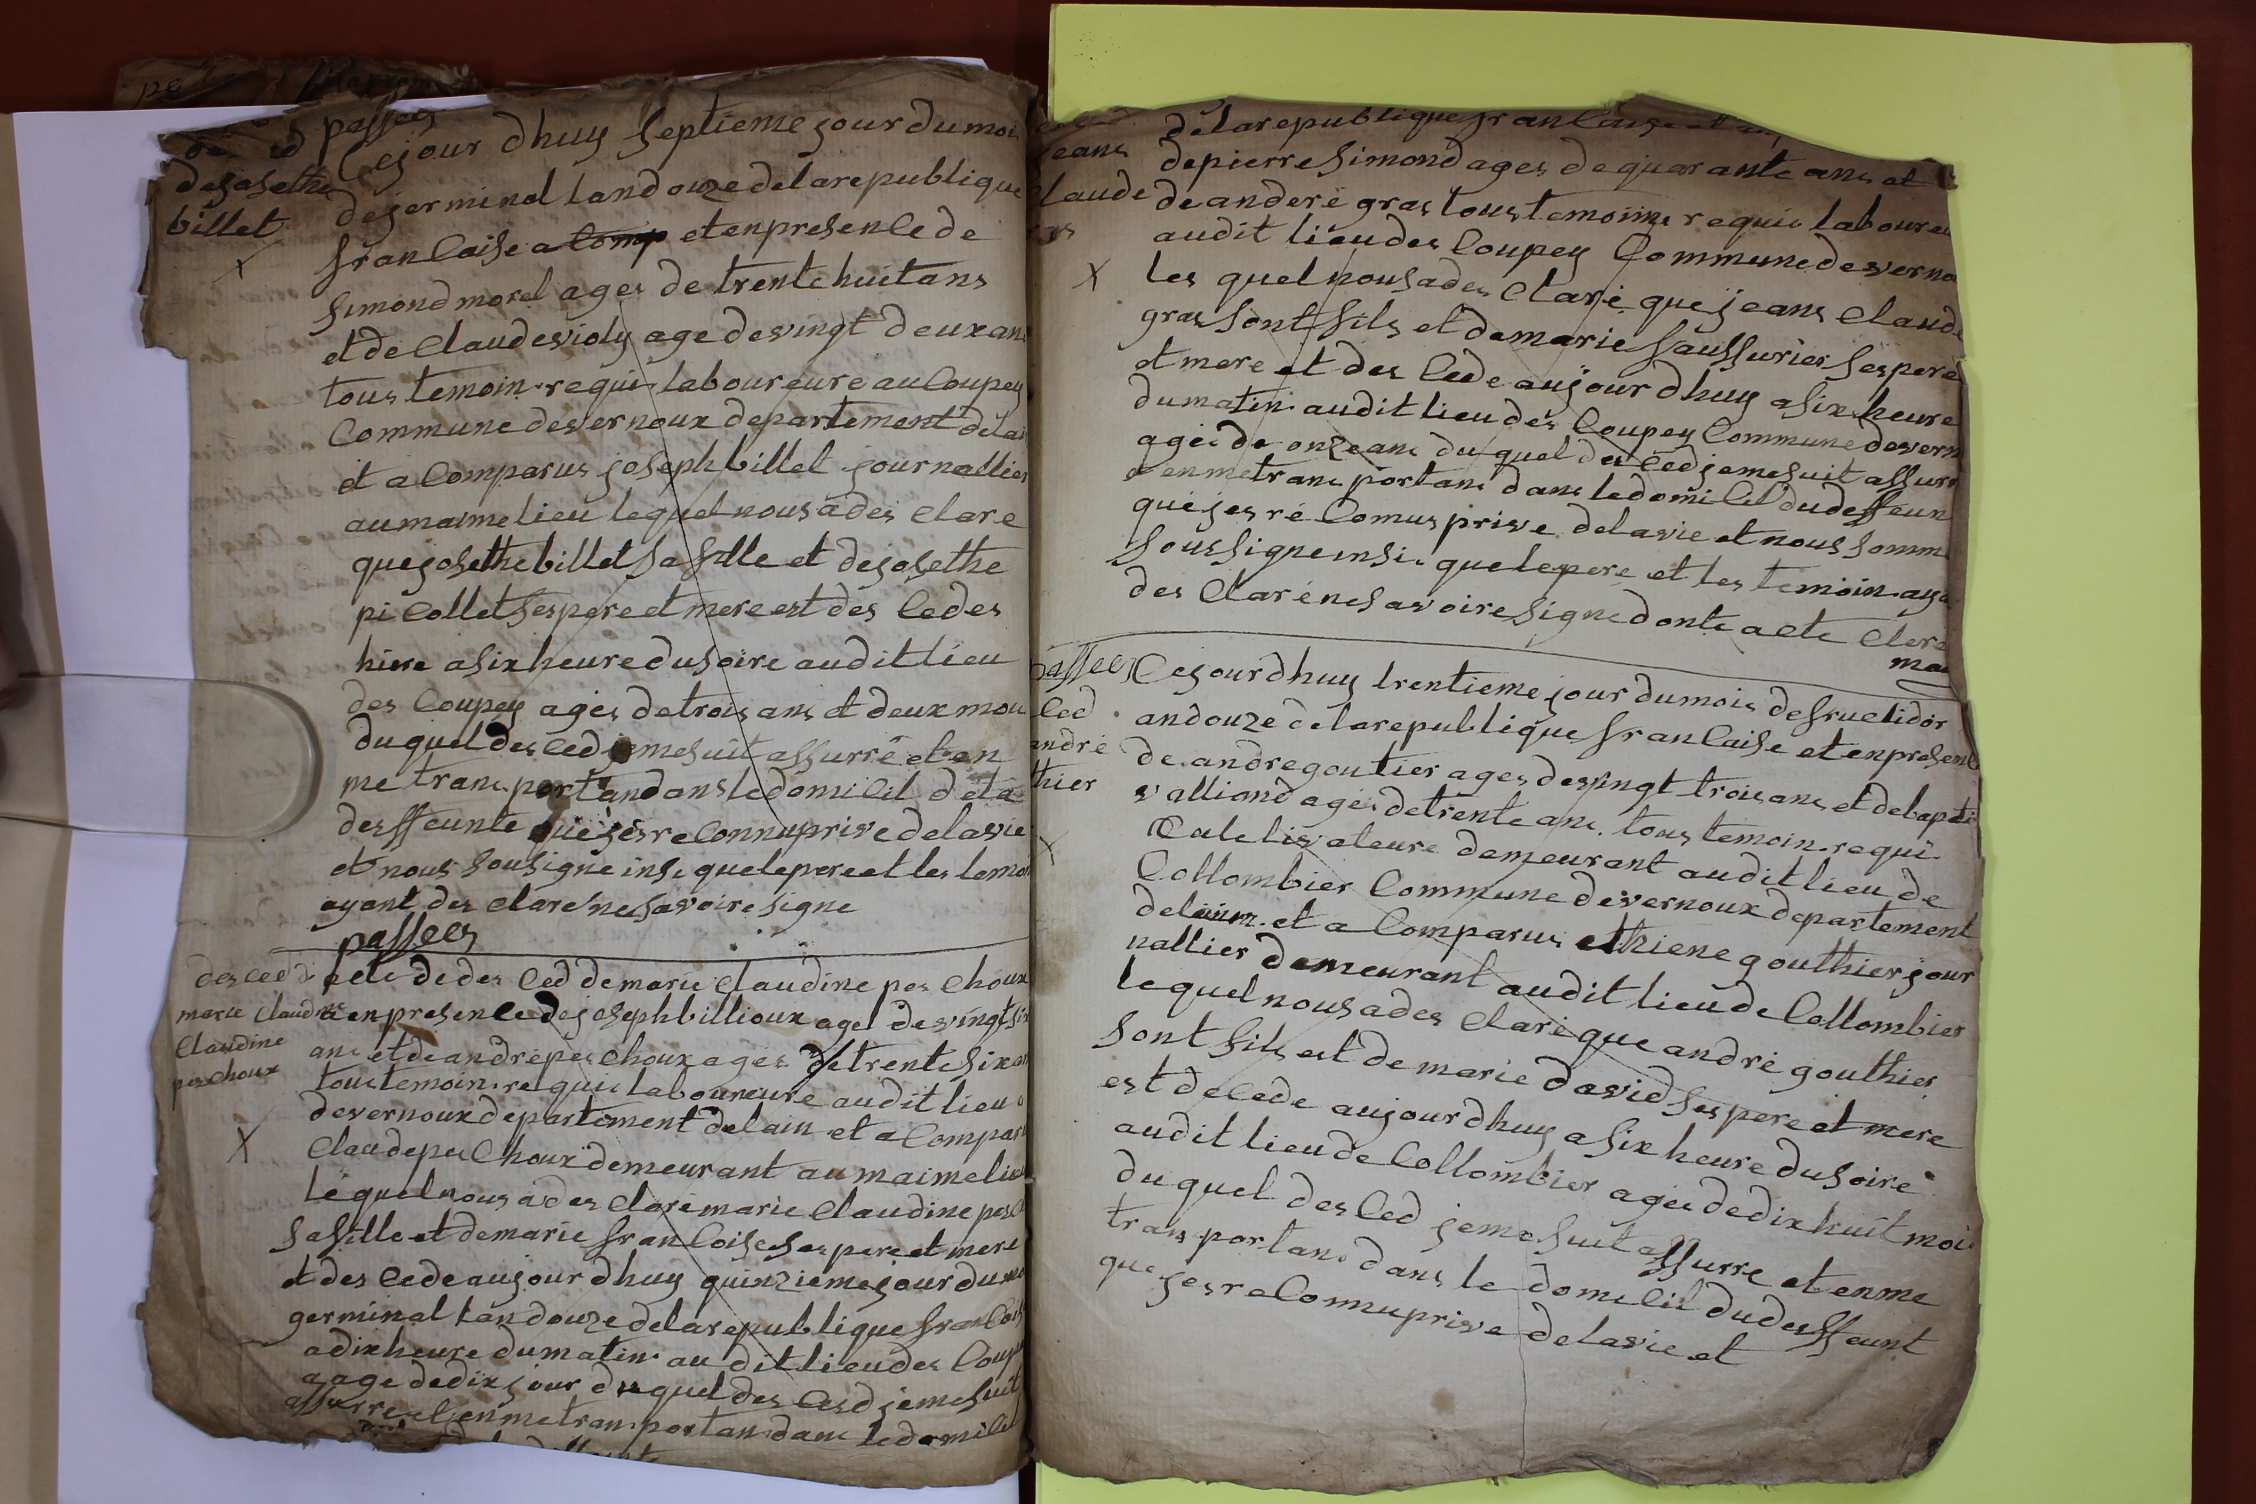 passees
de josethe
billet
Cejour dhuy septieme jour du moi
de jerminal landouze delarepublique
francaise a comp et enpresence de
simond morel ages de trente huit ans
et de claude violy age de vingt deux ans
tous temoin requi laboureure au coupey
commune devernoux departement delai
et a comparus joseph billet journallier
au maime lieu lequel nous a des clare
que josethe billet sa fille et de josethe
pi collet ses pere et mere est des cedes
hiere a six heure du soire audit lieu
des coupey ages de trois ans et deux moi
duquel des ced jemesuit assurré et en
me trans portandans le domicil dela
desffeunte que jesreconnu prive delavie
et nous sousigne insi que le pere et les temoi
ayant des clare ne savoire signe
passees
des ced
marie claudine
claudine
pes choux
acte de des ced de marie claudine pes choux
a enpresence de joseph billioux ages de vingt six
ans et de andre pes choux ages de trente six an
tous temoin requi laboureure audit lieu
devernoux departement delain et a compar
claude pes choux demeurant au maime lieu
lequel nous a des clare marie claudine pes
sa fille et de marie francoise ses pere et mere
et des cede aujour dhuy quinzieme jour du mo
germinal landouze delarepublique francois
a dix heure du matin au dit lieu des coupe
aage de dix jour duquel des ced jemesuit
assurre et en me trans portan dans le domicil
jeans
claude
delarepublique francaise
de pierre simond ages de quarante ans et
de andere gras tous temoins requi laboureu
audit lieu des coupey commune de verno
les quel nous a des claré que jeans claude
gras sont fils et de marie saussurier ses pere
et mere et des cede aujour dhuy a six heure
du matin audit lieu des coupey commune devern
agée de onze ans duquel des ced jemesuit assurr
a en me trans portans dans le domicil du desffeun
que jes ré comus prive de lavie et nous somm
soussigne insi que le pere et les temoin aya
des claré ne savoire signe donte acte clera
mai
passees
ced
andre
thier
Cejour dhuy trentieme jour du mois de fructidor
andouze delarepublique francaise et enpresenc
de andre goutier ages de vingt trois ans et de bapti
valliand ages de trente ans tous temoin requi
culetivateure demeurant audit lieu de
collombier commune devernoux departement
delain et a comparus ethiene gouthier jour
nallier demeurant audit lieu de collombier
lequel nous a des claré que andré gouthier
sont fils et de marie david ses pere et mere
est decede aujour dhuy a six heure du soire
audit lieu de collombier agée de dix huit moi
du quel des ced jeme suit assurre et enme
trans portans dans le domicil du desffeunt
que jesreconnu prive delavie et